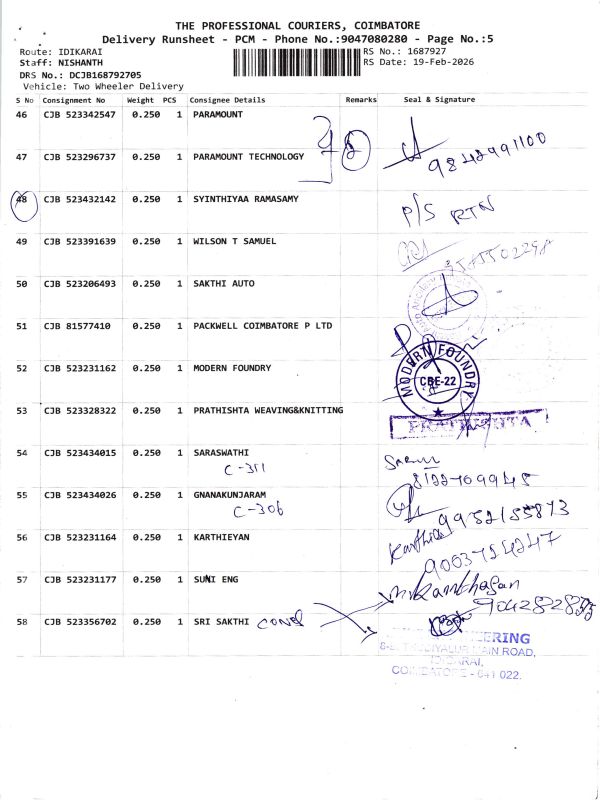 THE PROFESSIONAL COURIERS, COIMBATORE
Delivery Runsheet - PCM - Phone No.:9047080280 - Page No.:5
Route: IDIKARAI RS No.: 1687927
Staff: NISHANTH RS Date: 19-Feb-2026
DRS No.: DCJB168792705
Vehicle: Two Wheeler Delivery
S No Consignment No Weight PCS Consignee Details Remarks Seal & Signature
46 CJB 523342547 0.250 1 PARAMOUNT
47 CJB 523296737 0.250 1 PARAMOUNT TECHNOLOGY 2 9842991100
48 CJB 523432142 0.250 1 SYINTHIYAA RAMASAMY P/S RTN
49 CJB 523391639 0.250 1 WILSON T SAMUEL
50 CJB 523206493 0.250 1 SAKTHI AUTO
51 CJB 81577410 0.250 1 PACKWELL COIMBATORE P LTD
52 CJB 523231162 0.250 1 MODERN FOUNDRY MODERN FOUNDRY CBE-22
53 CJB 523328322 0.250 1 PRATHISHTA WEAVING&KNITTING PRATHISHTA
54 CJB 523434015 0.250 1 SARASWATHI
C-311 8122709945
55 CJB 523434026 0.250 1 GNANAKUNJARAM
C-306 9952155873
56 CJB 523231164 0.250 1 KARTHIEYAN Karthi 9003714247
57 CJB 523231177 0.250 1 SUNI ENG
58 CJB 523356702 0.250 1 SRI SAKTHI CONS
MAIN ROAD,
IDIKARAI,
COIMBATORE - 641 022.